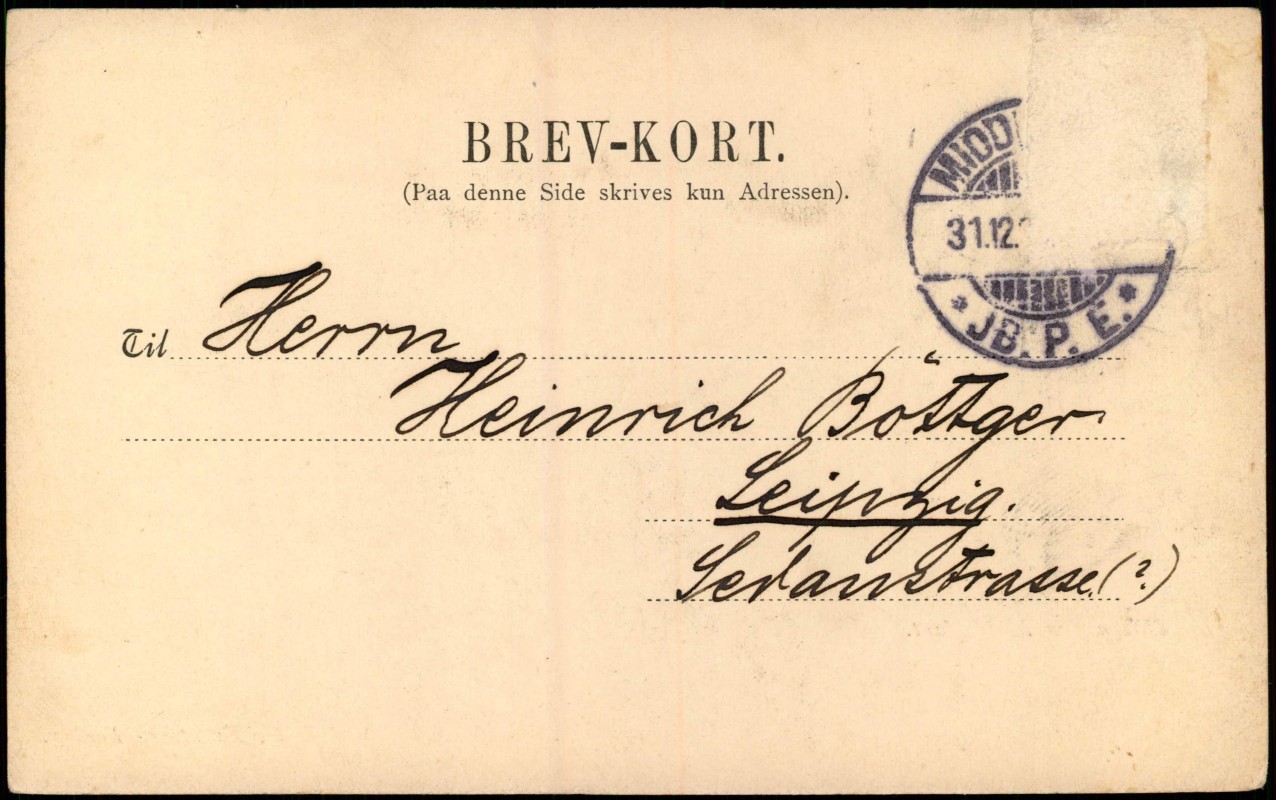 BREV-KORT.
(Paa denne Side skrives kun Adressen).
MIDD
31.12.
* JB. P. E. *
Til Herrn
Heinrich Böttger
Leipzig.
Sedanstrasse (?)